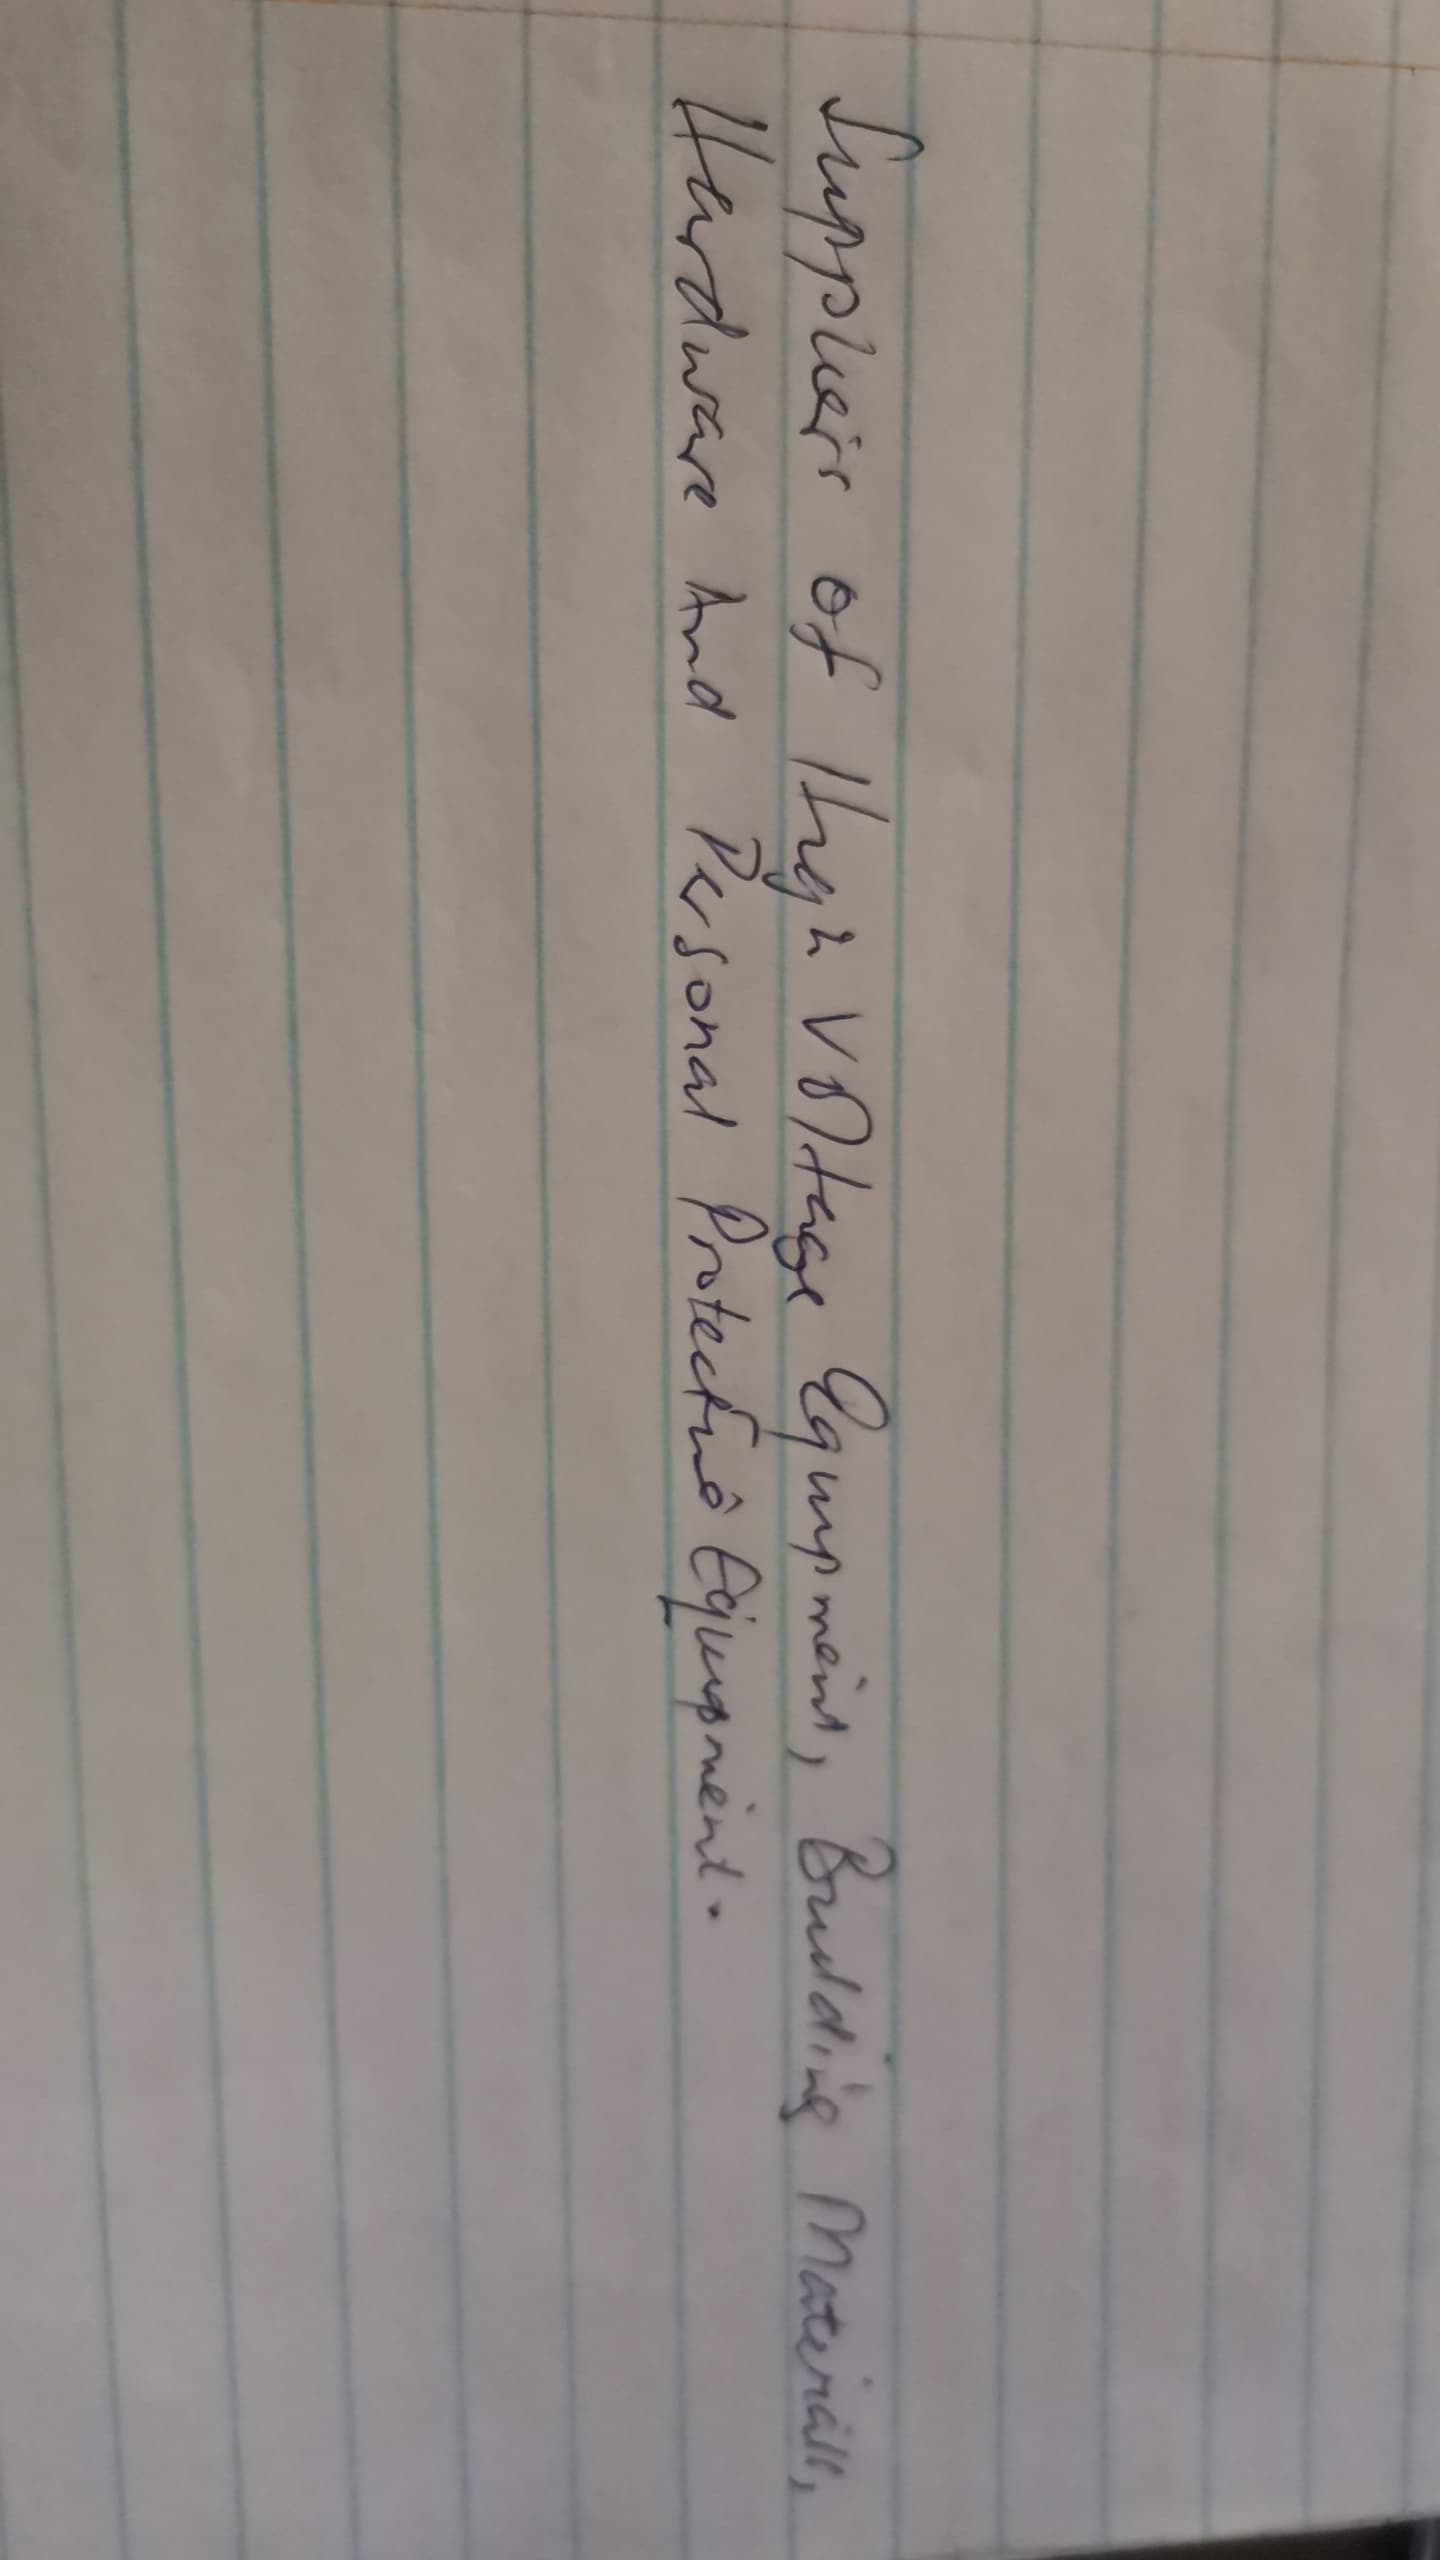 Suppliers of High Voltage Equipment, Building Materials,
Hardware And Personal Protective Equipment.